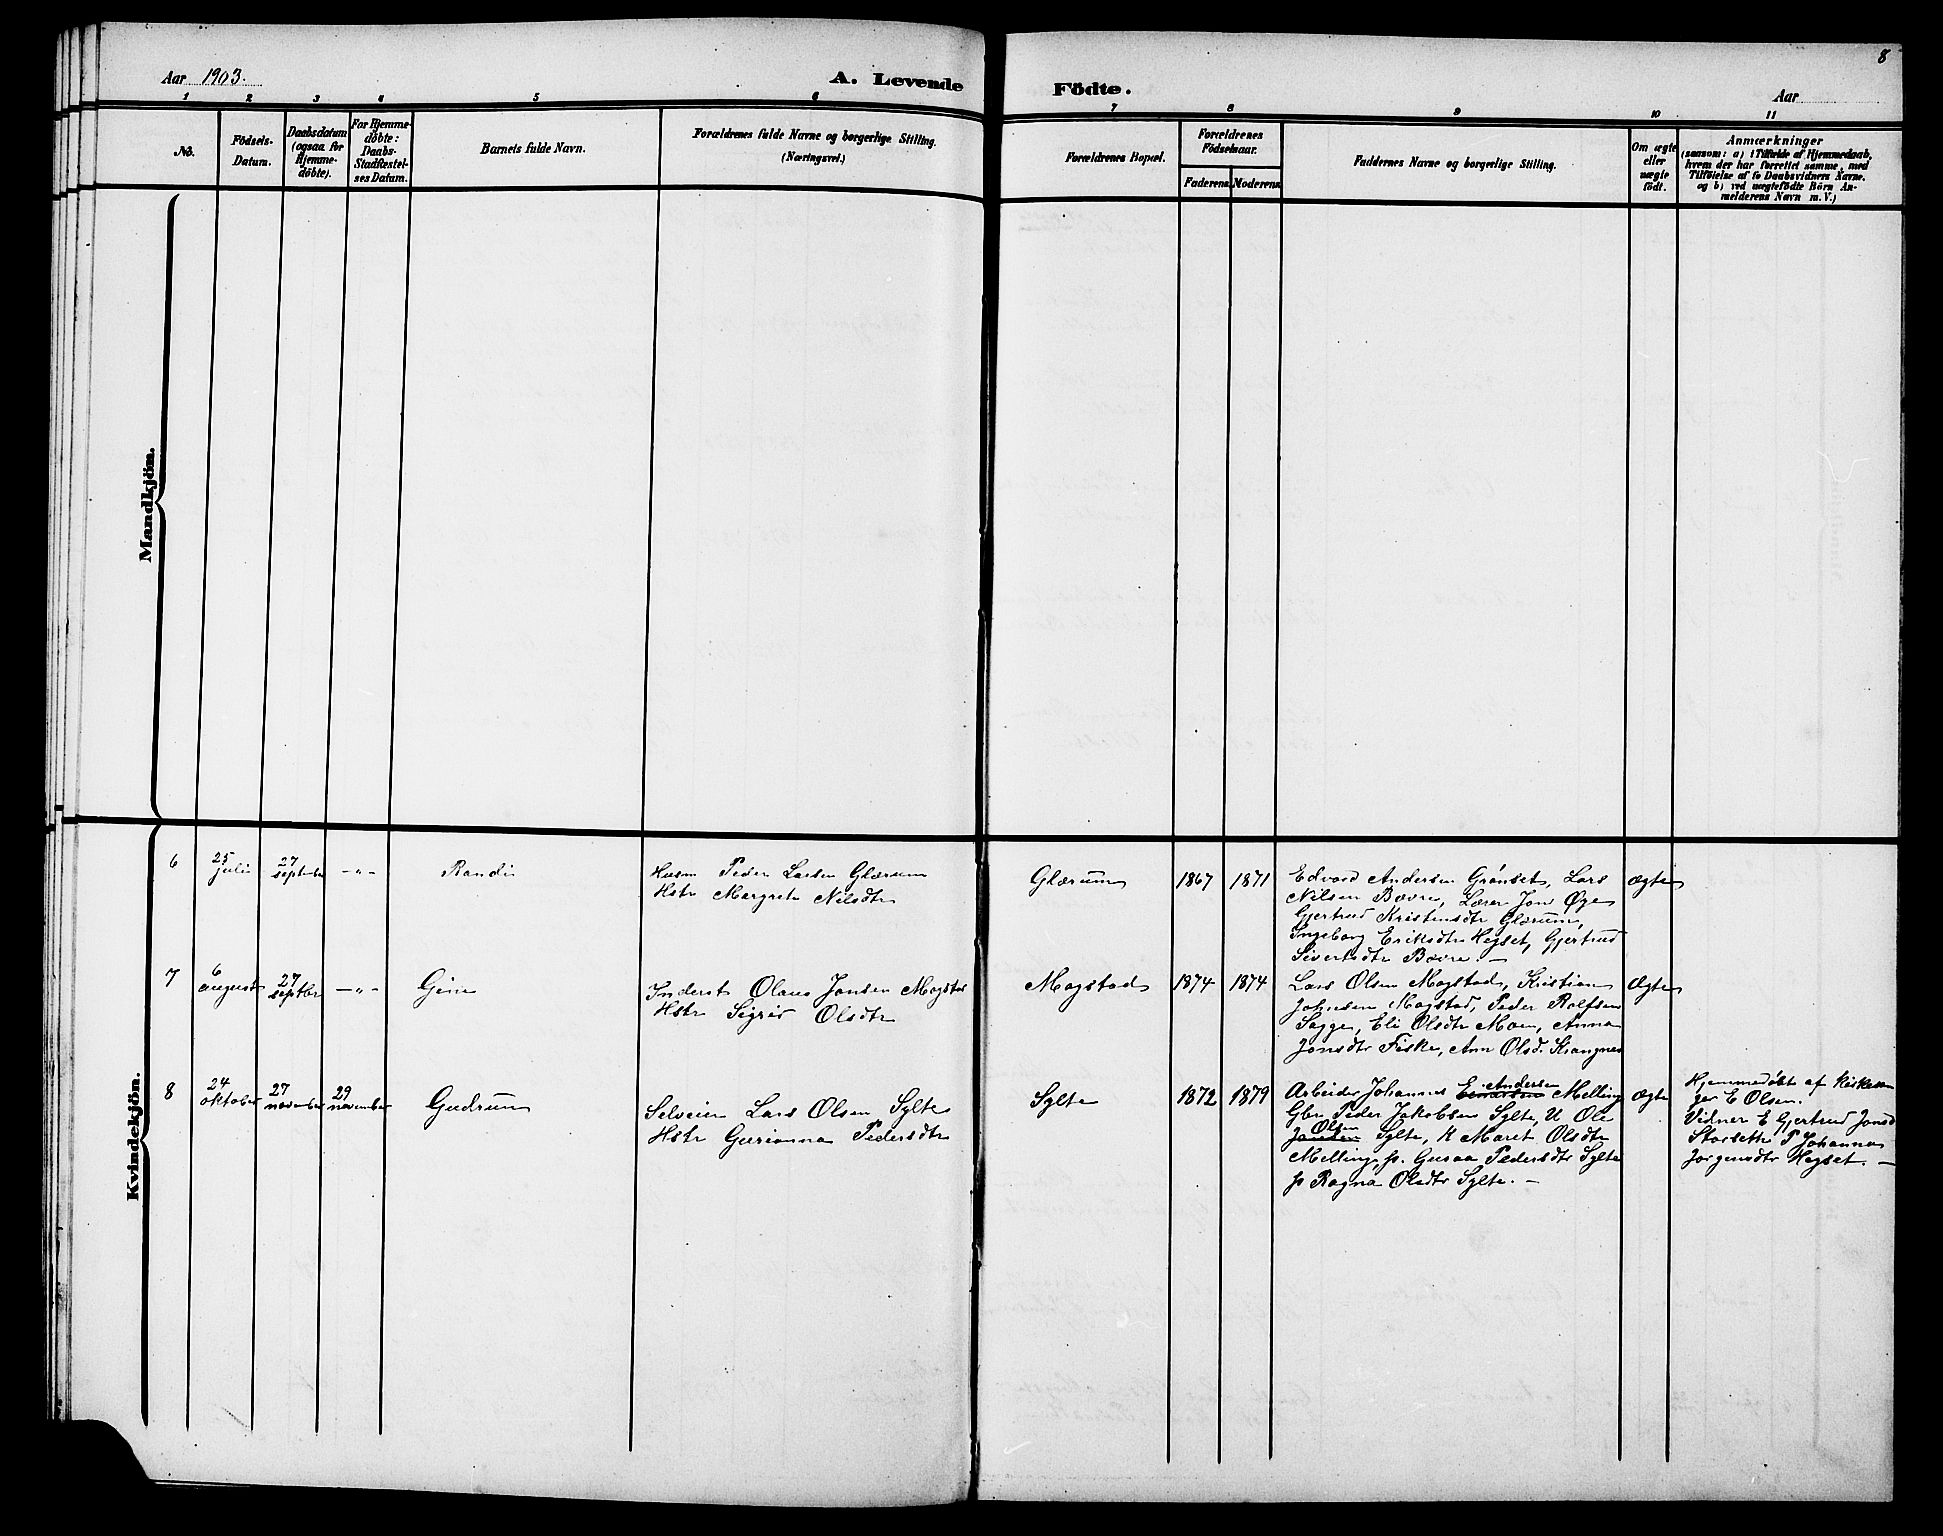 8
Aar 1903. A. Levende Födte. Aar
1 2 3 4 5 6 7 8 9 10 11
No.
Födsels-
Datum.
Daabsdatum
(ogsaa for
Hjemme-
döbte).
For Hjemme-
döbte:
Daabs-
Stadfæstel-
ses Datum.
Barnets fulde Navn.
Forældrenes fulde Navne og borgerlige Stilling.
(Næringsvei.)
Forældrenes Bopæl.
Forældrenes
Födselsaar.
Faderens. Moderens.
Faddernes Navne og borgerlige Stilling.
Om ægte
eller
uægte
födt.
Anmærkninger
(saasom: a) i Tilfælde af Hjemmedaab,
hvem der har forrettet samme, med
Tilföielse af to Daabsvidners Navne.
og b) ved uægtefödte Börn An-
melderens Navn m. V.)
Mandkjön.
Kvindekjön.
6
25
juli
27
septber
-"-
Randi
Husm Peder Larsen Glærum
Hstr Margrete Nilsdtr
Glærum
1867
1871
Edvard Andersen Grønset, Lars
Nilsen Bævre, Lærer Jon Øye
Gjertrud Kristensdtr Glærum,
Ingeborg Eriksdtr Hegset, Gjertrud
Sivertsdtr Bævre. —
Ægte
7
6
august
27
septbr
-"-
Gina
Inderst Olaus Jonsen Mogstad
Hstr Sigrid Olsdtr
Mogstad
1874
1874
Lars Olsen Mogstad, Kristian
Johnsen Mogstad, Peder Rolfsen
Sogge, Eli Olsdtr Moen, Anna
Jonsdtr Fiske, Ann Olsd. Krangnes
Ægte
8
24
oktober
27
november
29
november
Gudrun
Selveier Lars Olsen Sylte
Hstr Gurianna Pedersdtr
Sylte
1872
1879
Arbeider Johannes Andersen Melling
Gbr Peder Jakobsen Sylte, U Ole
Olsen Sylte, K Maret Olsdtr
Melling, p. Guraa Pedersdtr Sylte
p Ragna Olsdtr Sylte. —
Ægte
Hjemmedøbt af Kirkesan
ger E Olsen.
Vidner E Gjertrud Jonsd
Storseth P Johanna
Jørgensdtr Hegset. —